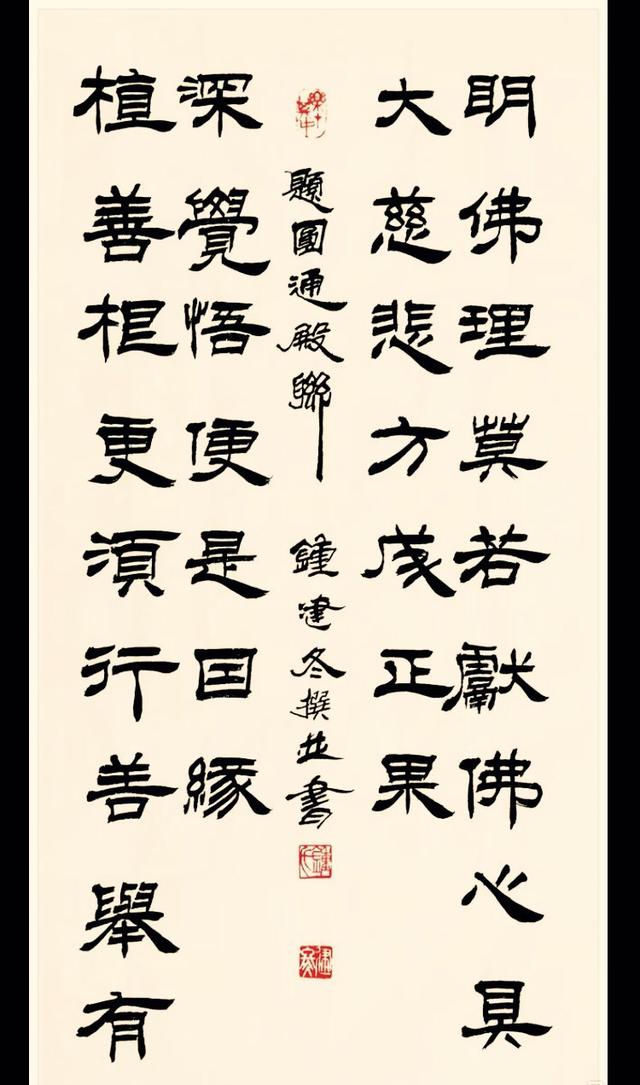 明佛理莫若獻佛心具
大慈悲方成正果
植善根更須行善舉有
深覺悟便是因緣
題圓通殿聯
鍾建冬撰並書